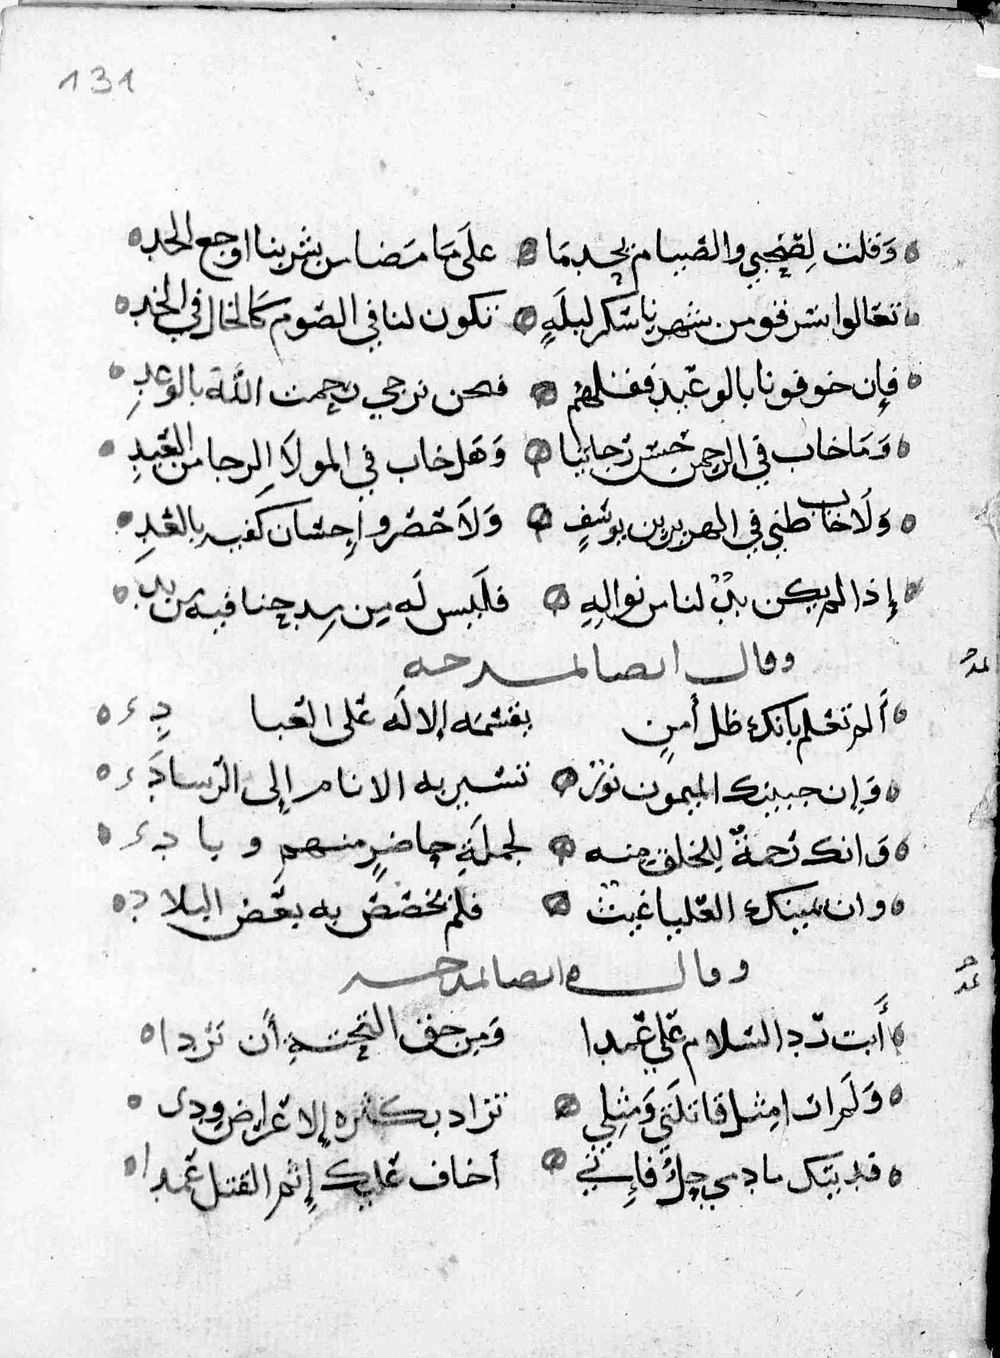 131
وَقلت لِصَحْبي والصّيام يجد بمَا علَى مَا مَضا من شربنا اوجع الحد
تعَالوا نسْرقو من شهرنا سُكر ليلَةٍ تكون لنا في الصّوم كَالخال في الخد
فإن خوفونا بالوعَيد فقل لهُم فنحن نرجي رحمت اللَّه بالوَعدِ
وَمَا خاب في الرحمن حُسْن رَجائنا وَهَل خاب في المولَا الرجا من العَبدِ
وَلَا خاب ظني في ابن يوسَفٍ وَلاَ حَصَرو إحسَان كفيه بالعَدِ
إذا لم يكن بدٌ لناس نوالِهِ فلَيس لَه مِن مدحنا فيه من بد
وقال ايضا لمدحه
أَلم تعَلم بانك ظل أمنٍ يقسّمَه الإلَه عَلى العَبا دِ
وَإن جبينك الميمون نورٌ تسْير به الانام إلى الرّسادَ
وَانك رَحمةٌ لِلخلق مِنه لجملَةِ حاضرٍ منهم وبادِ
وان يمينك العَليا غيثٌ فلمْ تُخصَصْ به بعَض البلاد
وقال ايضا لمدحه
أَبت رَد السَّلام عَلي عَمدا وَمِن حق التحيّة أَن تردا
وَلَم ار امِثل قاتلَتي وَمثِلي تزاد بكثره الاعَراض ودا
فديتك مادمي حِلٌ فإنّي أخاف عَليك إثم القتل عَمدا